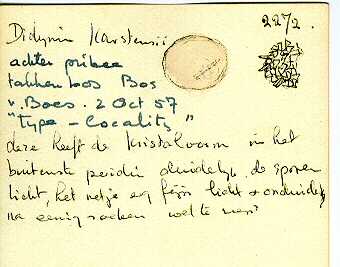 2272.
Didymium Karstensii
achter prikee
takkenbos Bos
v. Boes. 2 Oct 57
"type - Locality"
deze heeft de kristalvorm in het
buitenste peridie duidelijk, de sporen
licht, het netje erg fijn licht + onduidelijk
na eenig zoeken wel te zien